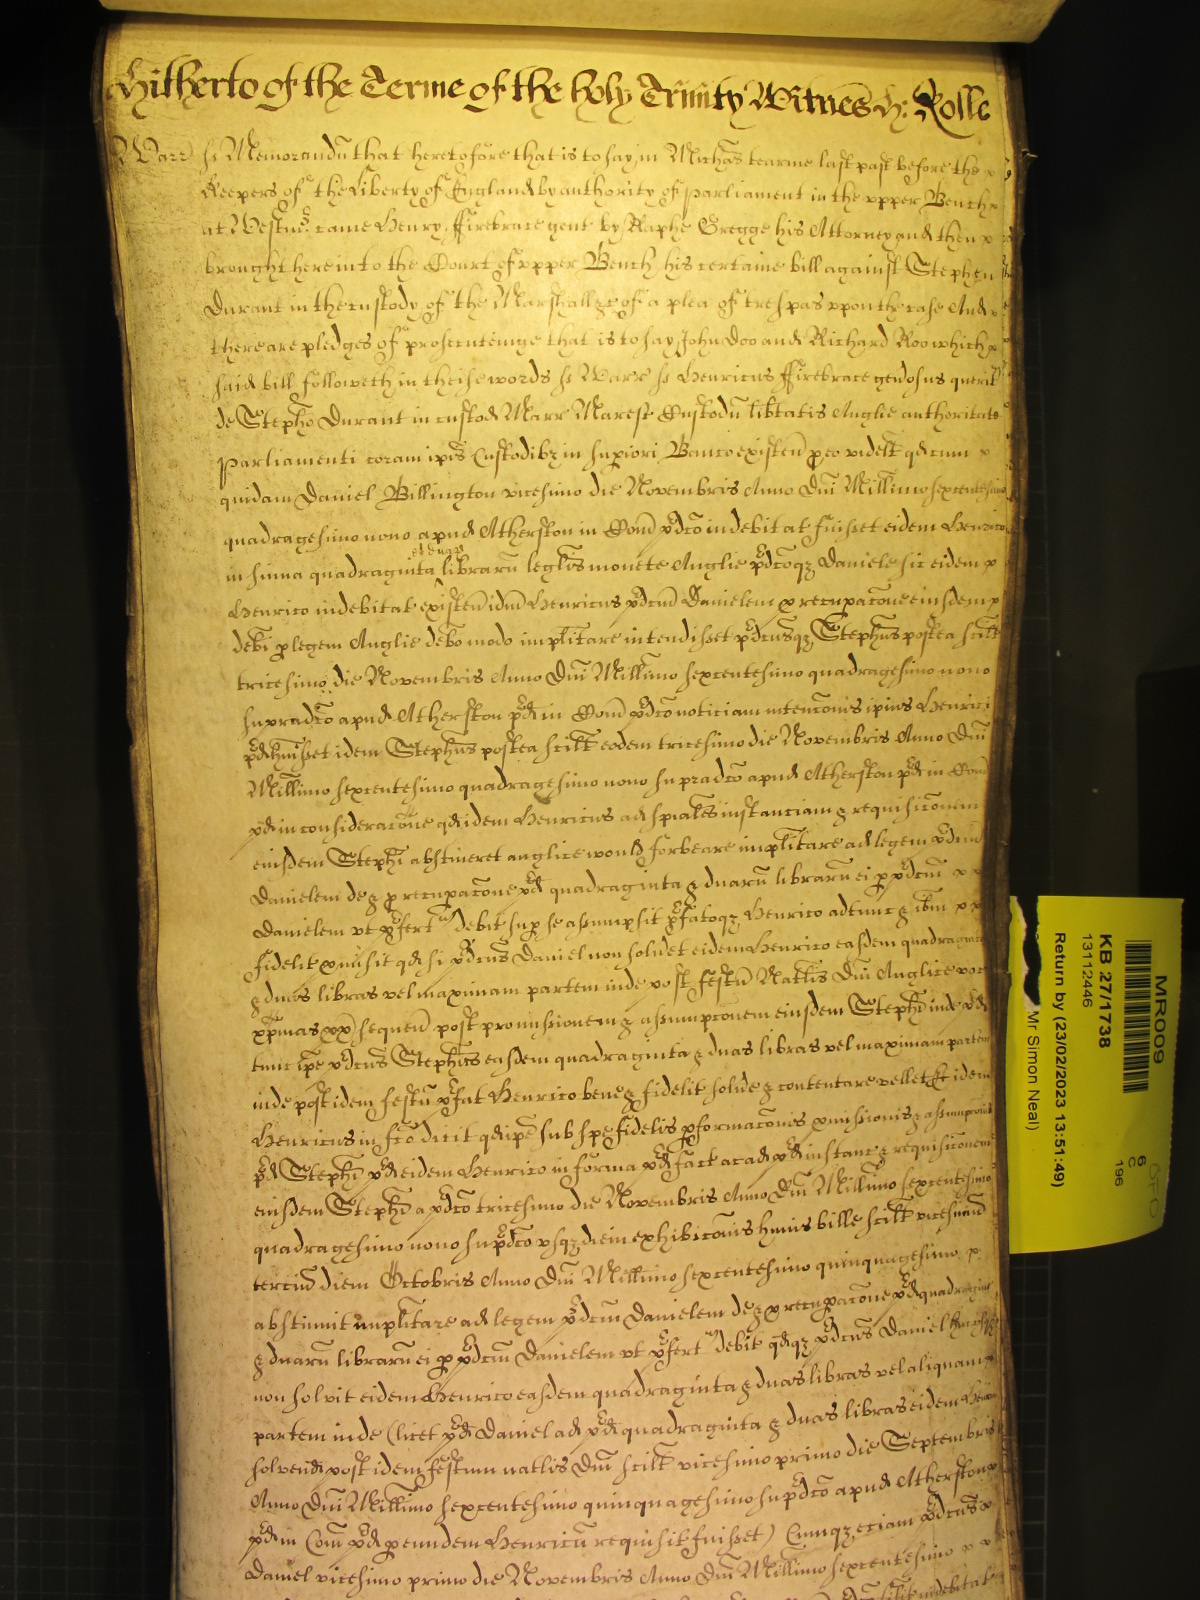 Hitherto of the Terme of the holy Trinity Witnes H: Rolle
Warr ss Memorandū that heretofore that is to say in Michās tearme last past before the
Keepers of the Liberty of England by authority of parliament in the vpper Bench
at Westmr. came Henry ffirebrace gent by Raphe Gregge his Attorney and then
brought here into the Court of vpper Bench his certaine bill against Stephen
Durant in the custody of the Marshall &c of a plea of trespas vpon the case And
there are pledges of prosecuteinge that is to say John Doo and Richard Roo which
said bill followeth in theise words ss Warr ss Henricus ffirebrace genosus querit
de Stephō Durant in custod Marr Maresc Custodū libtatis Anglie authoritate
Parliamenti coram ipīs Custodibz in supiori Banco existen p eo videlt qd cum
quidam Daniel Billington vicesimo die Novembris Anno Dm̄ Millimo sexcentesimo
quadragesimo nono apud Atherston in Com̄ pdc̄o indebitat fuisset eidem Henrico
in sum̄a quadraginta et duar librarū leglis monete Anglie pdc̄oqz Daniele sic eidem
Henrico indebitat existen̄ idm̄ Henricus pdc̄m Danielem p recupac̄one eiusdem
debī p legem Anglie debō modo implitare intendisset pdc̄usqz Stephūs postea scilt
tricesimo die Novembris Anno Dm̄ Millīmo sexcentesimo quadragesimo nono
supradc̄o apud Atherston pd in Com̄ pdc̄o noticiam intenc̄onis ipius Henrici
pd huisset idem Stephūs postea scilt eodem tricesimo die Novembris Anno Dm̄
Millīmo sexcentesimo quadragesimo nono supradc̄o apud Atherston pd in Com̄
pd in considerac̄one qd idem Henricus ad spiales instanciam & requisic̄onem
eiusdem Stephī abstineret anglice would forbeare implitare ad legem pdc̄m
Danielem de & p recupac̄one pd quadraginta & duarū librarū ei p pdc̄m
Danielem vt pfert debit sup se assumpsit pfatoqz Henrico adtunc & ibm
fidelit pmisit qd si pdc̄us Daniel non solvet eidem Henrico easdem quadraginta
& duas libras vel maximam partem inde post festū Natlis Dm̄ Anglice voc
xpmas sequen̄ post promissionem & assumpc̄onem eiusdem Stephī inde pd
tunc ipe pdc̄us Stephūs easdem quadraginta & duas libras vel maximam partem
inde post idem festū pfat Henrico bene & fidelit solvē & contentare vellet Et idem
Henricus in fc̄o dicit qd ipe sub spe fidelis pformac̄onis pmissionis & assumpc̄onis
pd Stephī pd eidem Henrico in forma pd fact ac ad pd instanc & requisic̄onem
eiusdem Stephī a pdc̄o tricesimo die Novembris Anno Dm̄ Millīmo sexcentesimo
quadragesimo nono supdc̄o vsqz diem exhibic̄onis huius bille scilt vicesimum
terciū diem Octobris Anno Dm̄ Millimo sexcentesimo quinquagesimo
abstinuit implitare ad legem pdc̄m Danielem de & p recupac̄one pd quadraginta
& duarū librarū ei p pdc̄m Danielem vt pfert debit qdqz pdc̄us Daniel
non solvit eidem Henrico easdem quadraginta & duas libras vel aliquam
partem inde (licet pd Daniel ad pd quadraginta & duas libras eidem Henrico
solvend post idem festum natlis Dm̄ scilt vicesimo primo die Septembris
Anno Dm̄ Millimo sexcentesimo quinquagesimo supdc̄o apud Atherston
pd in Com̄ pd p eundem Henricū requisit fuisset) Cumqz eciam pdc̄us
Daniel vicesimo primo die Novembris Anno Dm̄ Millimo sexcentesimo
indebitat
MR009
6
C
196
KB 27/1738
13112446
Return by (23/02/2023 13:51:49)
Mr Simon Neal)